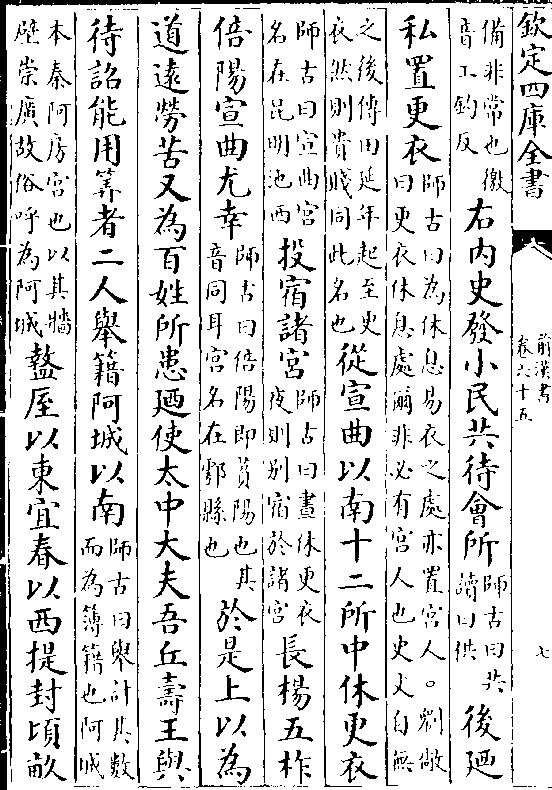 欽定四庫全書
前漢書
卷六十五
七
備非常也徼
音工釣反
右内史發小民共待會所
師古曰共
讀曰供
後廼
私置更衣
師古曰為休息易衣之處亦置宫人。劉敞
曰更衣休息處爾非必有宫人也史文自無
之後傳田延年起至更
衣然則貴賤同此名也
從宣曲以南十二所中休更衣
師古曰宣曲宫
名在昆明池西
投宿諸宫
師古曰晝休更衣
夜則别宿於諸宫
長楊五柞
倍陽宣曲尤幸
師古曰倍陽即萯陽也其
音同耳宫名在鄠縣也
於是上以為
道遠勞苦又為百姓所患廼使太中大夫吾丘壽王與
待詔能用筭者二人舉籍阿城以南
師古曰舉計其數
而為簿籍也阿城
本秦阿房宫也以其牆
壁崇廣故俗呼為阿城
盩厔以東宜春以西提封頃畝